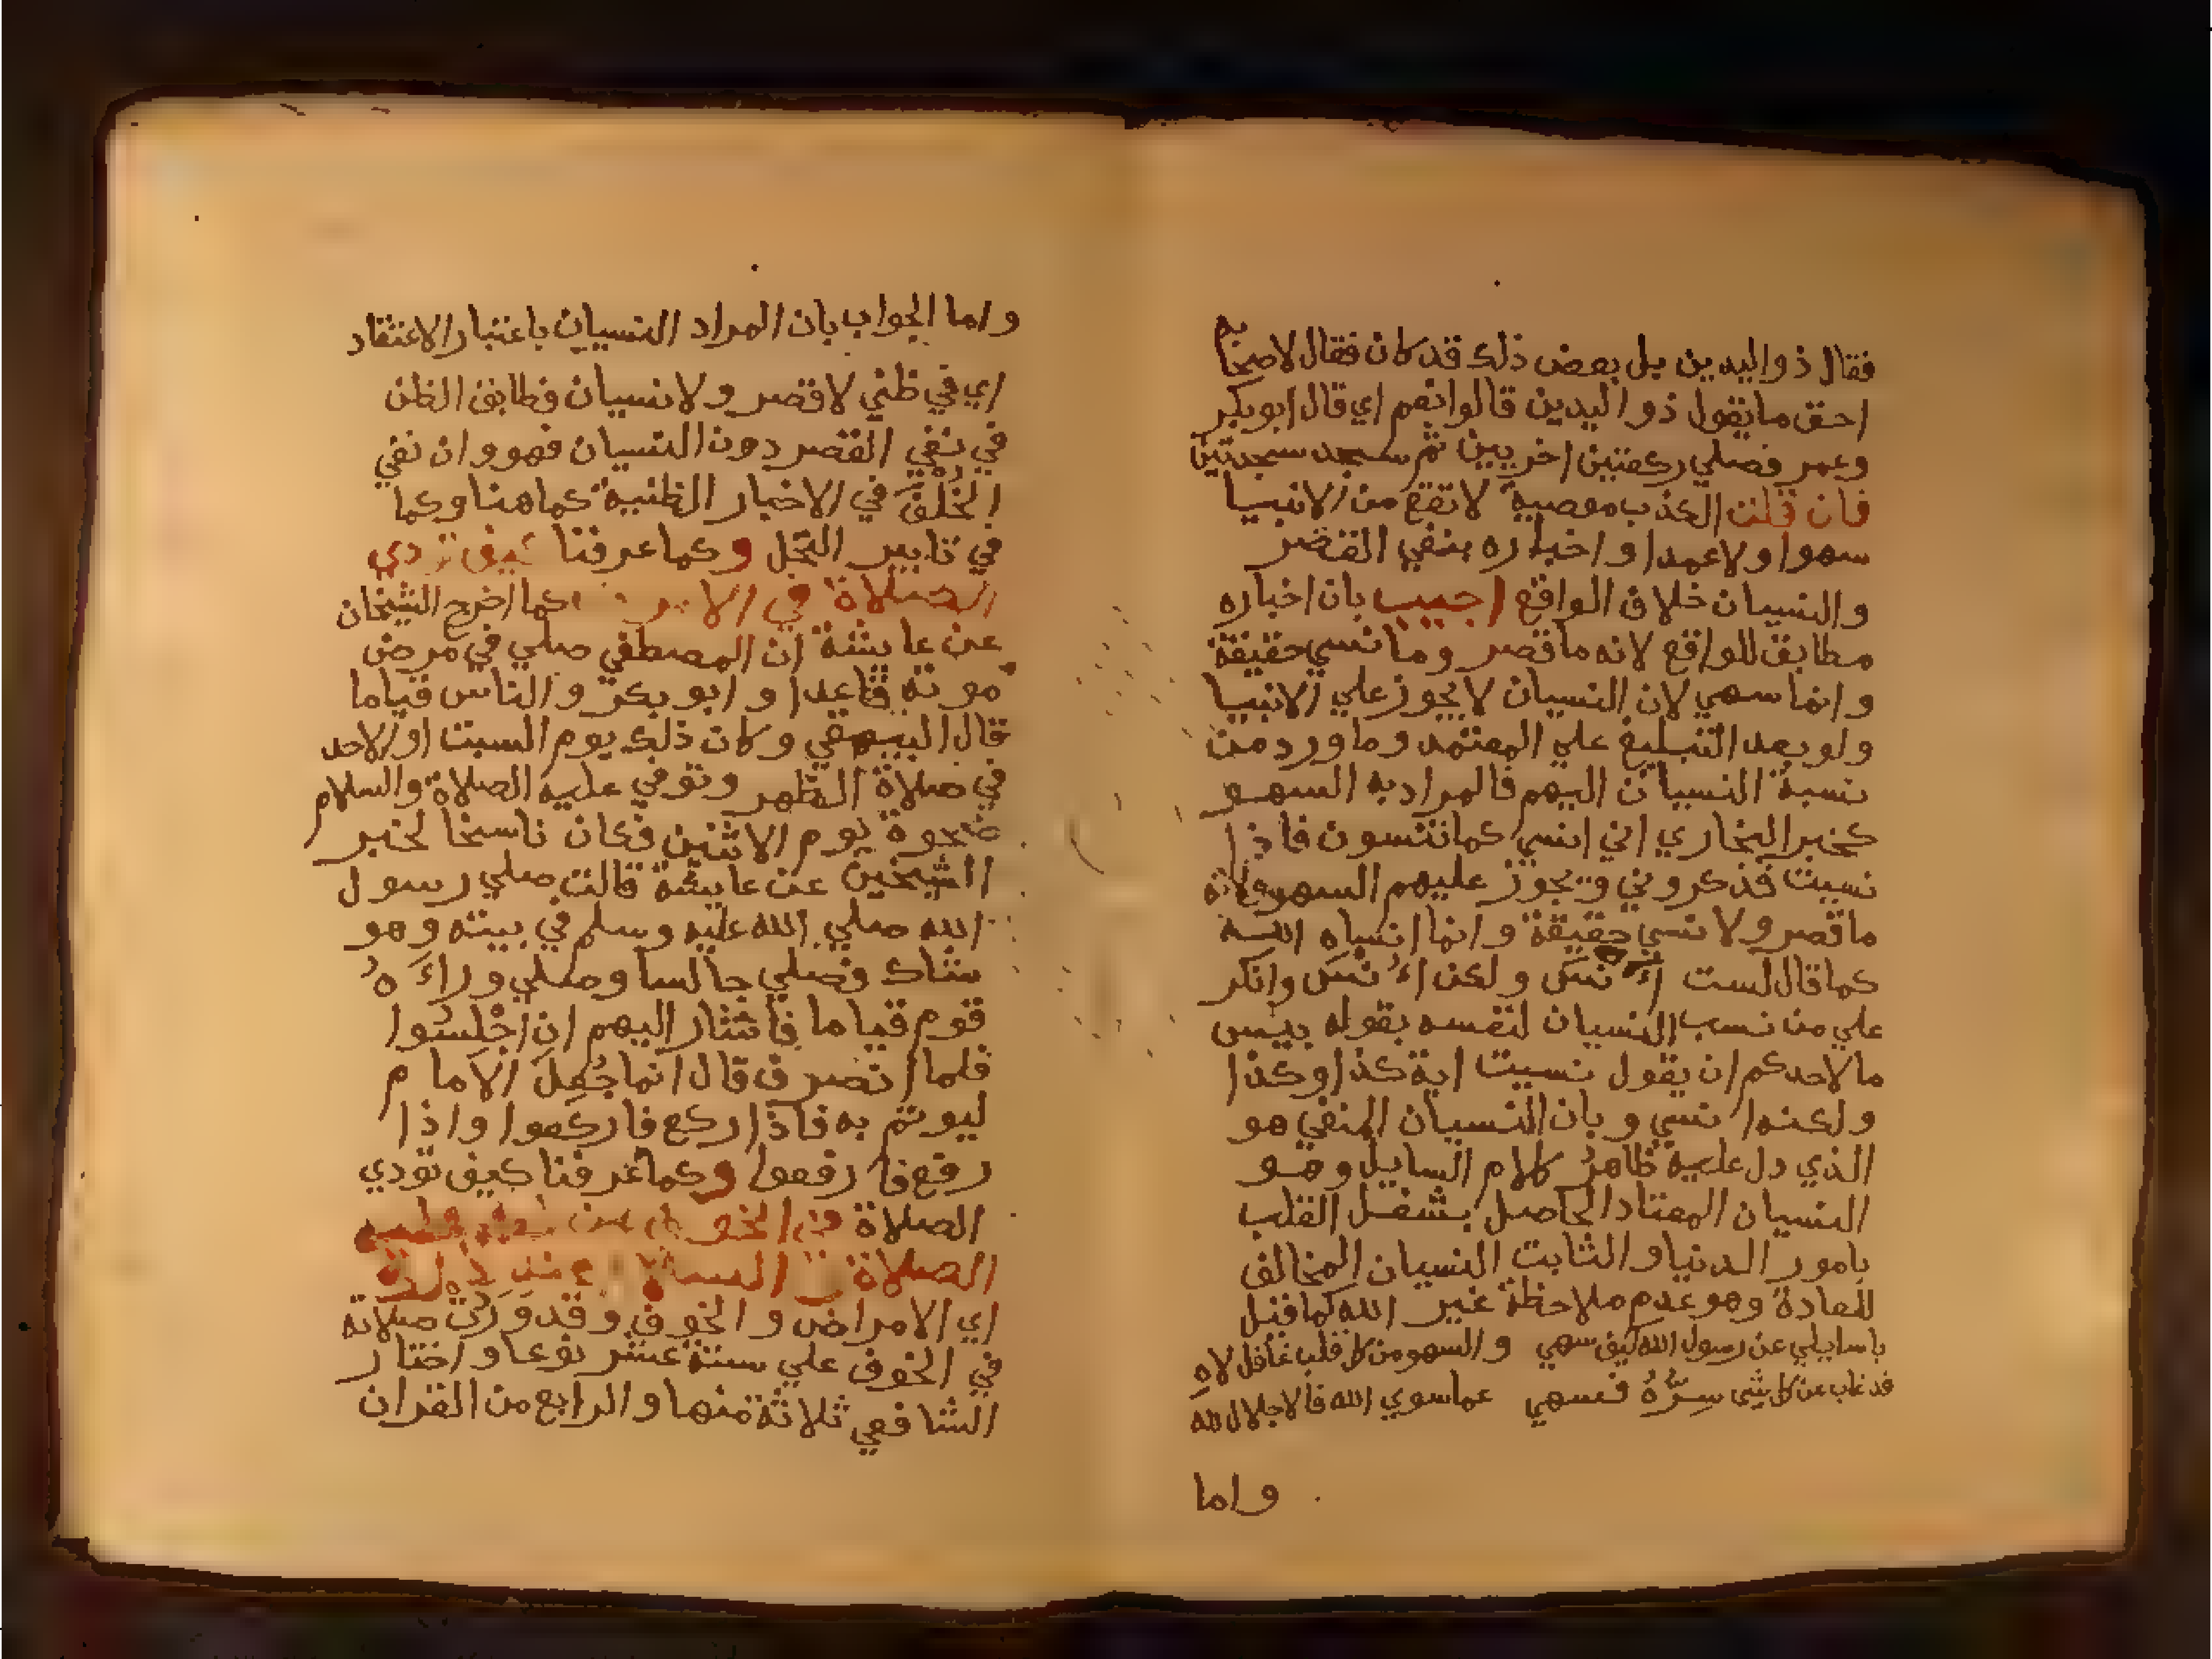 فقال ذو اليدين بل بعض ذلك قد كان فقال لاصحابه
احق ما يقول ذو اليدين قالوا نعم اي قال ابو بكر
وعمر فصلي ركعتين اخريين ثم سجد سجدتين
فان قلت الكذب معصية لا تقع من الانبيا
سهوا ولا عمدا واخباره بنفي القصر
والنسيان خلاف الواقع اجيب بان اخباره
مطابق للواقع لانه ما قصر وما نسي حقيقة
وانما سهي لان النسيان لا يجوز علي الانبيا
ولو بعد التبليغ علي المعتمد وما ورد من
نسبة النسيان اليهم فالمراد به السهو
كخبر البخاري اني انسي كما تنسون فاذا
نسيت فذكروني ويجوز عليهم السهو لانه
ما قصر ولا نسي حقيقة وانما انساه الله
كما قال لست انس ولكن انس وانكر
علي من نسب النسيان لنفسه بقوله بيس
ما لاحدكم ان يقول نسيت اية كذا وكذا
ولكنه نسي وبان النسيان المنفي هو
الذي دل عليه ظاهر كلام السايل وهو
النسيان المعتاد الحاصل بشغل القلب
بامور الدنيا والثابت النسيان المخالف
للعادة وهو عدم ملاحظة غير الله كما قيل
يا سايلي عن رسول الله كيف سهي والسهو من كل قلب غافل لاهِ
قد غاب عن كل شي سِرُّهُ فسهي عما سوي الله فالاجلال لله
واما
واما الجواب بان المراد النسيان باعتبار الاعتقاد
اي في ظني لا قصر ولا نسيان فطابق الظن
في نفي القصر دون النسيان فهو وان نفي
الخُلْفَ في الاخبار الظنية كما هنا وكما
في تابير النخل وكما عرفنا كيف تودي
الصلاة في كما اخرج الشيخان
عن عايشة ان المصطفي صلي في مرض
موته قاعدا وابو بكر والناس قياما
قال البيهقي وكان ذلك يوم السبت او الاحد
في صلاة الظهر وتوفي عليه الصلاة والسلام
ضحوة يوم الاثنين فكان ناسخا لخبر
الشيخين عن عايشة قالت صلي رسول
الله صلي الله عليه وسلم في بيته وهو
شاك فصلي جالسا وصلي وراءَهُ
قوم قياما فاشار اليهم ان اجْلسُوا
فلما انصرف قال انما جُعِلَ الامام
ليوتم به فاذا ركع فاركعوا واذا
رفع فارفعوا وكما عرفنا كيف تودي
الصلاة في الخوف من
الصلاة
اي الامراض والخوف وقد وَرَدَتْ صلاته
في الخوف علي ستة عشر نوعا واختار
الشافعي ثلاثة منها والرابع من القران